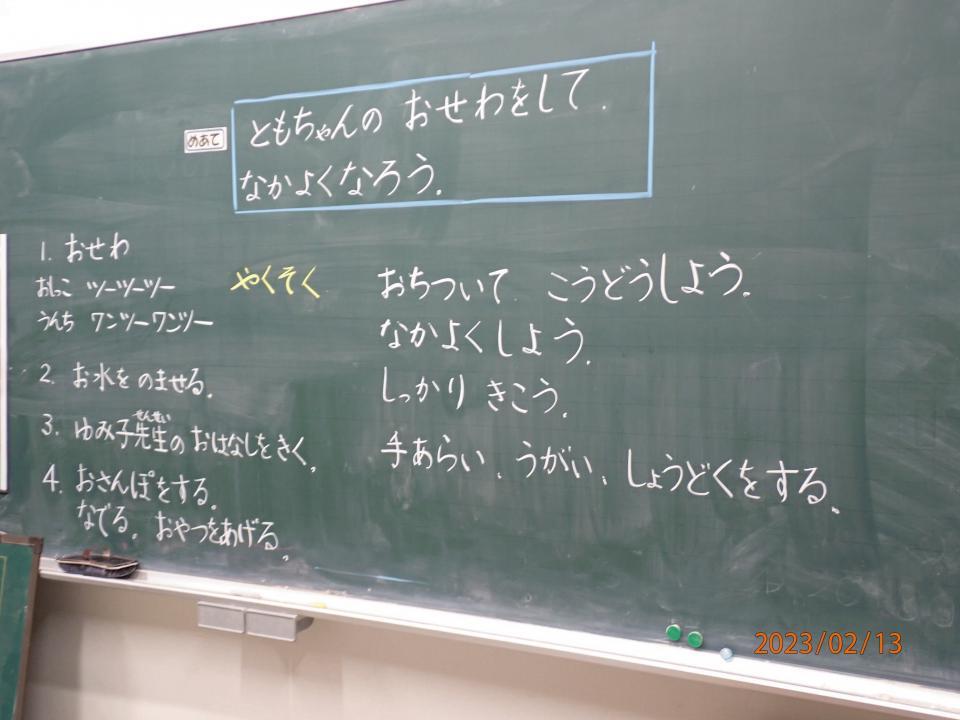 めあて
ともちゃんの おせわをして、
なかよくなろう。
1. おせわ
おしっこ ツーツーツー
うんち ワンツーワンツー
2. お水をのませる。
せんせい
3. ゆみ子先生のおはなしをきく。
4. おさんぽをする。
なでる。おやつをあげる。
やくそく
おちついて こうどうしよう。
なかよくしよう。
しっかり きこう。
手あらい、うがい、しょうどくをする。
2023/02/13